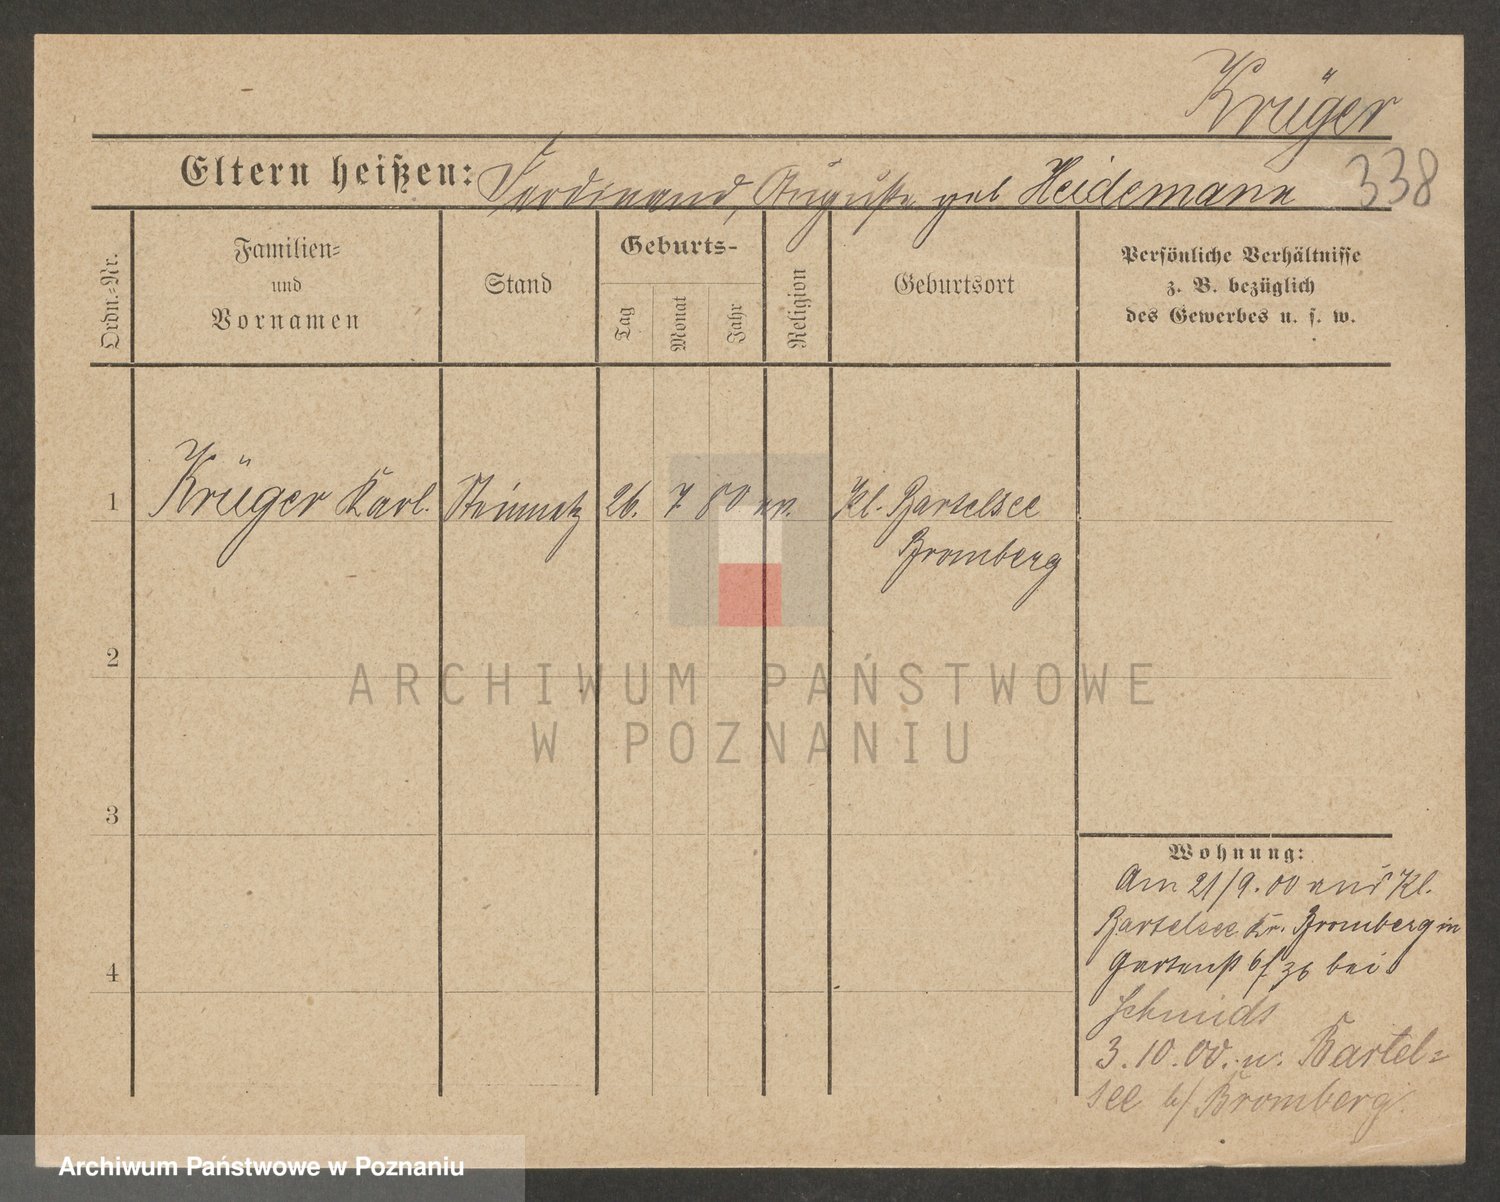 Krüger
Eltern heißen: Ferdinand, Auguste geb Heidemann 338
Ordn.-Nr.
Familien-
und
Vornamen
Stand
Geburts-
Tag
Monat
Jahr
Religion
Geburtsort
Persönliche Verhältnisse
z. B. bezüglich
des Gewerbes u. s. w.
1 Krüger Karl. Steinmetz 26. 7 80 ev. Kl. Bartelsee
Bromberg
2
3
4
Wohnung:
Am 21/9.00 aus Kl.
Bartelsee Kr. Bromberg in
Gartenst bei
Schmidt
3.10.00. n. Bartel=
see b/ Bromberg.
ARCHIWUM PAŃSTWOWE
W POZNANIU
Archiwum Państwowe w Poznaniu